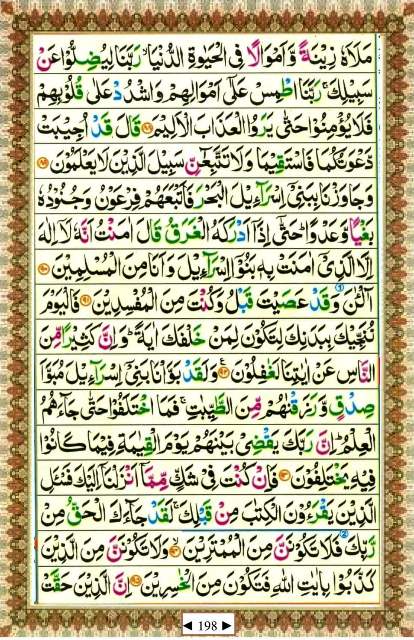 مَلَاَهٗ زِیْنَةً وَّ اَمْوَالًا فِی الْحَیٰوةِ الدُّنْیَا ۙ رَبَّنَا لِیُضِلُّوْا عَنْ
سَبِیْلِكَ ۚ رَبَّنَا اطْمِسْ عَلٰۤی اَمْوَالِهِمْ وَ اشْدُدْ عَلٰی قُلُوْبِهِمْ
فَلَا یُؤْمِنُوْا حَتّٰی یَرَوُا الْعَذَابَ الْاَلِیْمَ ﴿۸۸﴾ قَالَ قَدْ اُجِیْبَتْ
دَّعْوَتُكُمَا فَاسْتَقِیْمَا وَ لَا تَتَّبِعٰٓنِّ سَبِیْلَ الَّذِیْنَ لَا یَعْلَمُوْنَ ﴿۸۹﴾
وَ جٰوَزْنَا بِبَنِیْۤ اِسْرَآءِیْلَ الْبَحْرَ فَاَتْبَعَهُمْ فِرْعَوْنُ وَ جُنُوْدُهٗ
بَغْیًا وَّ عَدْوًا ؕ حَتّٰۤی اِذَاۤ اَدْرَكَهُ الْغَرَقُ ۙ قَالَ اٰمَنْتُ اَنَّهٗ لَاۤ اِلٰهَ
اِلَّا الَّذِیْۤ اٰمَنَتْ بِهٖ بَنُوْۤا اِسْرَآءِیْلَ وَ اَنَا مِنَ الْمُسْلِمِیْنَ ﴿۹۰﴾
آٰلْـٰٔنَ وَ قَدْ عَصَیْتَ قَبْلُ وَ كُنْتَ مِنَ الْمُفْسِدِیْنَ ﴿۹۱﴾ فَالْیَوْمَ
نُنَجِّیْكَ بِبَدَنِكَ لِتَكُوْنَ لِمَنْ خَلْفَكَ اٰیَةً ؕ وَ اِنَّ كَثِیْرًا مِّنَ
النَّاسِ عَنْ اٰیٰتِنَا لَغٰفِلُوْنَ ﴿۹۲﴾ وَ لَقَدْ بَوَّاْنَا بَنِیْۤ اِسْرَآءِیْلَ مُبَوَّاَ
صِدْقٍ وَّ رَزَقْنٰهُمْ مِّنَ الطَّیِّبٰتِ ۚ فَمَا اخْتَلَفُوْا حَتّٰی جَآءَهُمُ
الْعِلْمُ ؕ اِنَّ رَبَّكَ یَقْضِیْ بَیْنَهُمْ یَوْمَ الْقِیٰمَةِ فِیْمَا كَانُوْا
فِیْهِ یَخْتَلِفُوْنَ ﴿۹۳﴾ فَاِنْ كُنْتَ فِیْ شَكٍّ مِّمَّاۤ اَنْزَلْنَاۤ اِلَیْكَ فَسْـَٔلِ
الَّذِیْنَ یَقْرَءُوْنَ الْكِتٰبَ مِنْ قَبْلِكَ ۚ لَقَدْ جَآءَكَ الْحَقُّ مِنْ
رَّبِّكَ فَلَا تَكُوْنَنَّ مِنَ الْمُمْتَرِیْنَ ﴿۹۴﴾ وَ لَا تَكُوْنَنَّ مِنَ الَّذِیْنَ
كَذَّبُوْا بِاٰیٰتِ اللّٰهِ فَتَكُوْنَ مِنَ الْخٰسِرِیْنَ ﴿۹۵﴾ اِنَّ الَّذِیْنَ حَقَّتْ
◄ 198 ►